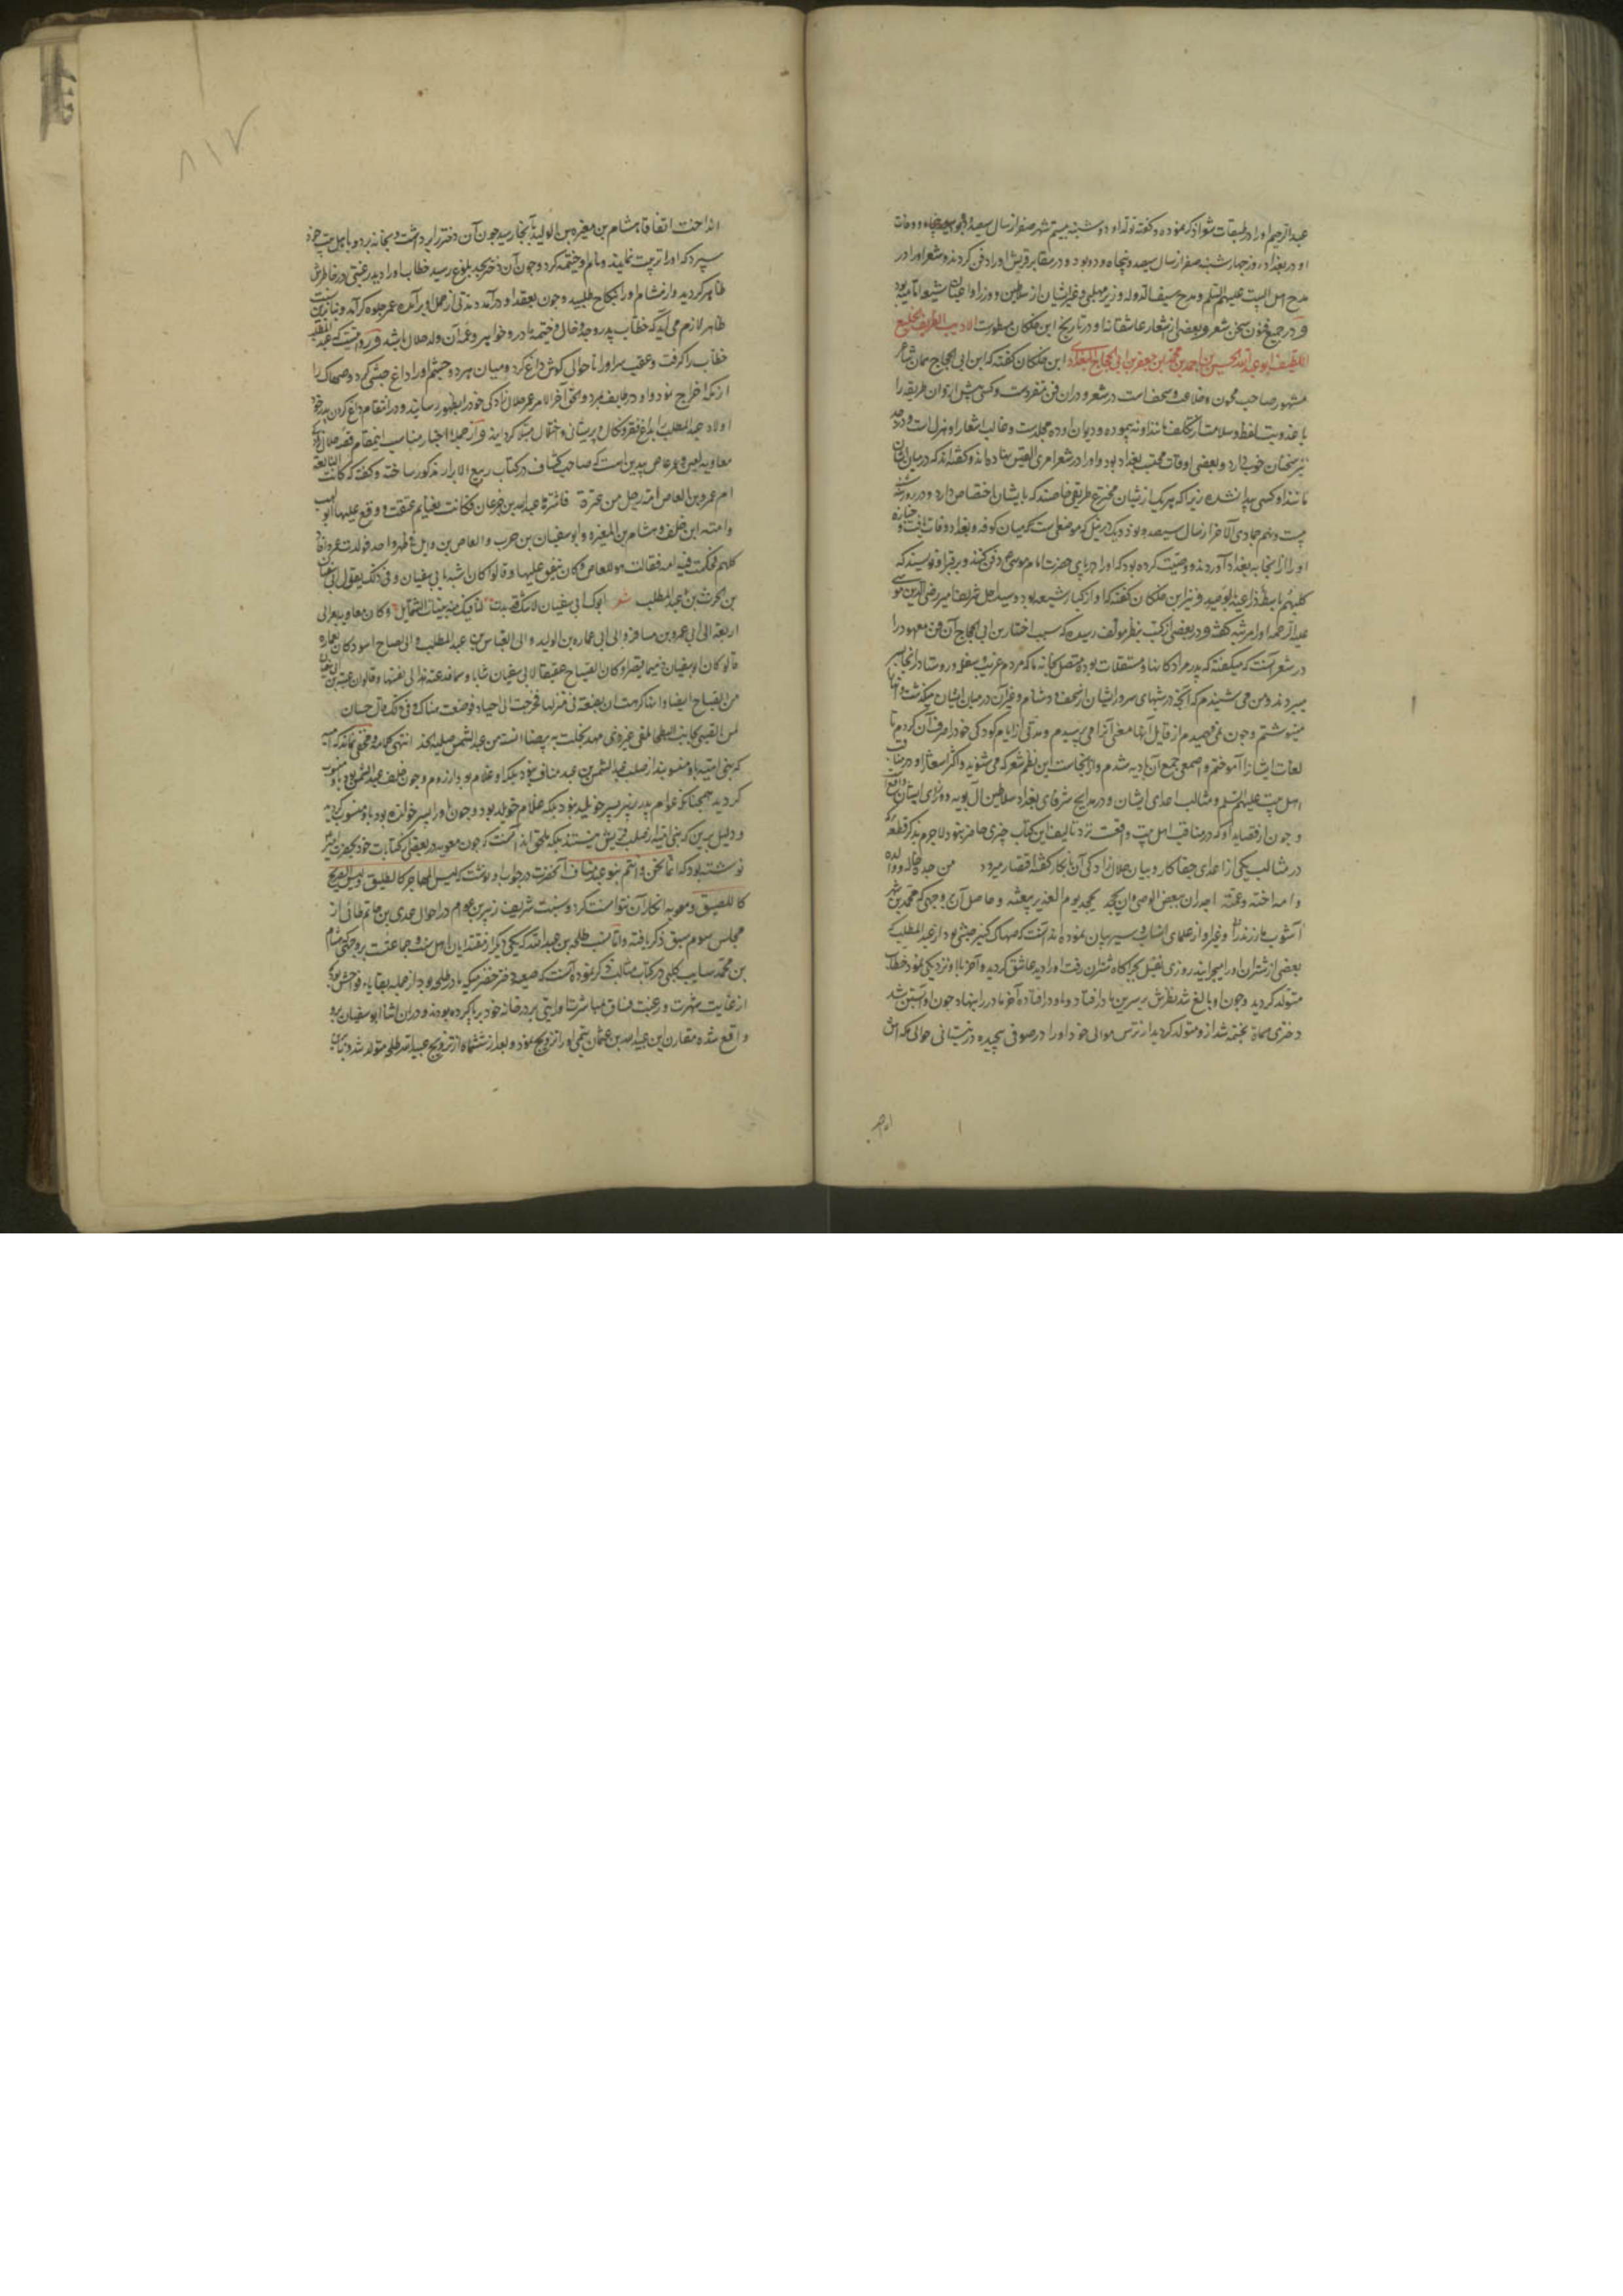 عبدالرحیم او را در طبقات شعرا ذکر نموده و گفته تولد او دوشنبه بیستم شهر صفر از سال سیصد
او در بغداد روز چهارشنبه صفر از سال سیصد و پنجاه و دو بود و در مقابر قریش او را دفن کردند و شعر او را در
مدح اهل البیت علیهم السلم و مدح سیف الدوله و وزیر مهلبی و غیر ایشان از سلاطین و وزرا
و در جمیع فنون سخن شعر و بعضی از اشعار عاشقانه او در تاریخ ابن خلکان مسطورست الادیب الظریف الخلیع
اللطیف ابو عبدالله الحسین بن احمد بن محمد بن جعفر بن ابی الحجاج البغدادی ابن خلکان گفته که ابن ابی الحجاج همان شاعر
مشهور صاحب مجون و خلاعت و سخف است در شعر و در ان فن متفردست و کسی پیش از وان طریقه را
با عذوبت لفظ و سلامت از تکلف مانند او نه پیموده و دیوان او ده مجلدست و غالب اشعار او هزل است و در جد
نیز سخنان خوب دارد و بعضی اوقات محتسب بغداد بود و او را در شعر با مری القیس نهاده اند و گفته اند که در میان ایشان
مانند او کسی پیدا نشده زیرا که هر یک از ایشان مخترع طریقی خاصند که بایشان اختصاص دارد و در روز
بیست و هفتم جمادی الاخر از سال سیصد و نود و یک در نیل که موضعی است که میان کوفه و بغداد وفات یافت و جنازه
او را از انجا به بغداد آوردند و وصیت کرده بود که او را در پای حضرت امام موسی ع دفن کنند و بر قبر او نویسند که
کلبهم باسط ذراعیه بالوصید و نیز ابن خلکان گفته که او از کبار شیعه بود و سید اجل شریف میر رضی الدین موسوی
علیه الرحمه او را مرثیه گفته و در بعضی از کتب بنظر مولف رسیده که سبب اختیار ابن ابی الحجاج آن فن معهود را
در شعر آنست که میگفته که پدر مرا دکانها و مستقلات بوده متصل بخانه ما که مردم غریب و سفله و روستا در انجا بسر
میبردند و من می شنیدم که آنچه در شبهای سرد ایشان از سخف و دشنام و غیر آن در میان ایشان میگذشت و آنها را
مینوشتم و چون نمی فهمیدم از قایل آنها معنی آنرا می پرسیدم و مدتی از ایام کودکی خود را صرف آن کردم تا
لغات ایشان را آموختم و اصمعی جمع آن بادیه شدم و از انجاست این نظم شعر که می شنوید و اکثر اشعار او در مناقب
اهل بیت علیهم السلم و مثالب اعدای ایشان و در مدایح شرفای بغداد و سلاطین ال بویه و وزرای ایشان واقع
و چون از قصاید او که در مناقب اهل بیت واقعست نزد تالیف این کتاب چیزی حاضر نبود لاجرم بذکر قطعه که
در مثالب یکی از اعدای جفاکار و بیان حلال زادگی آن نابکار گفته اقتصار میرود من جده خاله و والده
وامه اخته وعمته اجدر ان یبغض الوصی وان یجحد یوم الغدیر بیعته و حاصل آن بر وجهی که محمد بن شهر
آشوب مازندرانی و غیر او از علمای انساب و سیر بیان نموده اند آنست که صهاک کنیز حبشی بود از عبدالمطلب که
بعضی از شتران او را میچرانید روزی نفیل بچراگاه شتران رفت او را دید عاشق گردید و آخر با او نزدیکی نمود خطاب
متولد گردید و چون او بالغ شد نظرش بر سرین مادر افتاد و بر او در افتاد آخر مادر را بنهاد چون او آبستن شد
دختری مسماة بحنتمه شد از و متولد گردید از ترس موالی خود او را در صوفی پیچیده در بستانی حوالی مکه اش
انداخت اتفاقا هشام بن مغیره بن الولید بآنجا رسید چون آن دختر را برداشت و بخانه برد و باهل بیت خود
سپرد که او را تربیت نمایند و نام او حنتمه کرد و چون آن دختر بحد بلوغ رسید خطاب او را دید رغبتی در خاطرش
ظاهر گردید و از هشام او را بنکاح طلبید و چون بعقد او در آمد و مدتی از حمل او بر آمد عمر جلوه گر آمد و بنابرین
ظاهر لازم می آید که خطاب پدر و جد و خال و حنتمه مادر و خواهر و عمه آن ولد حلال باشد و مرویست که عبدالمطلب
خطاب را گرفت و عقب سر او را تا حوالی گوش داغ کرد و میان هر دو چشم او را داغ حبشی کرد و صهاک را
از مکه اخراج نمود و او در طایف مرد
اولاد عبدالمطلب
معاویه لعین و عمرعاص پلیدین است که صاحب کشاف در کتاب ربیع الابرار مذکور ساخته و گفته که کانت النابغه
ام عمرو بن العاص امة رجل من عنزة فاشتراها عبدالله بن جدعان فکانت بغیا ثم عتقت و وقع علیها ابو لهب
وامیه ابن خلف و هشام بن المغیره و ابو سفیان بن حرب و العاص بن وایل فی طهر واحد فولدت عمروا فادعاه
کلهم فحکمت فیه امه فقالت هو للعاص و کان ینفق علیها و قالوا کان اشبه بابی سفیان و فی ذلک یقول ابو سفیان
بن الحرث بن عبدالمطلب شعر ابوک ابو سفیان لاشک قد بدت لنا فیک منه بینات الشمایل و کان معاویه یعزی الی
اربعة الی ابی عمرو بن مسافر و الی ابی عماره بن الولید و الی العباس بن عبدالمطلب و الی الصباح اسود کان لعماره
قالوا کان ابو سفیان ذمیما قصیرا و کان الصباح عسیفا لابی سفیان شابا وسیما فدعته هند الی نفسها و قالوا ان عتبه بن ابی سفیان
من الصباح ایضا و انها کرهت ان تضعه فی منزلها فخرجت الی اجیاد فوضعته هناک و فی ذلک قال حسان
لمن الصبی بجانب البطحا ملقی غیر ذی مهد نجلت به بیضاء انسه من عبدالشمس صلبة الخد انتهی کلامه و مخفی نماند که امیه
که بنی امیه باو منسوبند از صلب عبدالشمس بن عبد مناف نبود بلکه او غلام بود از روم و چون خلف عبدالشمس بود باو منسوب
گردید همچنانکه عوام پدر زبیر پسر خویلد نبود بلکه غلام خویلد بود و چون او را پسر خوانده بود باو منسوب گردید
و دلیل برین که بنی امیه از صلب قریش نیستند بلکه ملحق اند آنست که چون معویه در بعضی کتابات خود بحضرت امیر
نوشته بود که انما نحن و انتم بنو عبد مناف آنحضرت در جواب او نوشت که لیس المهاجر کالطلیق و لیس الصریح
کاللصیق و معویه انکار آن نتوانست کرد و نسبت شریف زبیر بن عوام در احوال عدی بن حاتم طائی از
مجلس سوم سبق ذکر یافته و اما نسب طلحه بن عبدالله که یکی دیگر از مقتدایان اهل سنت و جماعتست بر وجهی که هشام
بن محمد سایب کلبی در کتاب مثالب ذکر نموده آنست که صعبه دختر حضرمیکه مادر طلحه بود از جمله بغایاء فواحش بود
از غایت شهرت و رغبت فساق مباشرتها رایتی بر در خانه خود برپا کرده بودند و در ان اثنا ابو سفیان برو
واقع شده مقارن این عبیدالله بن عثمان تیمی او را تزویج نموده و بعد از ششماه از تزویج عبیدالله طلحه متولد شد